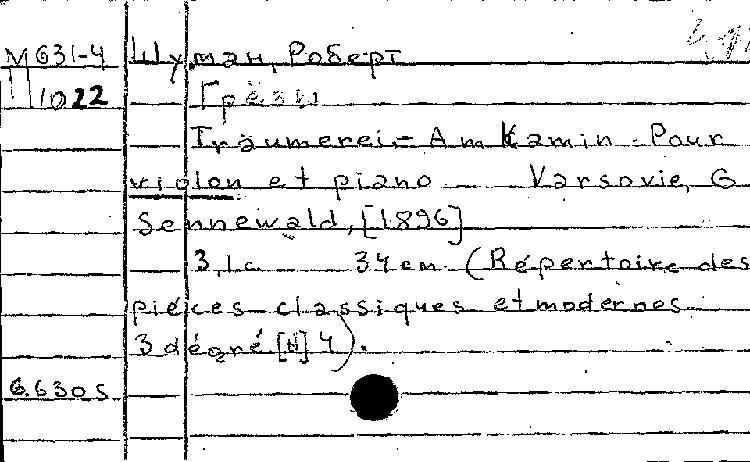 М 631-4 Шуман, Роберт
П 1022 Грёзы
Träumerei.- Am Kamin - Pour
violon et piano Varsovie, G
Sennewald, [1896]
3, 1 c 34 cm (Répertoire des
pièces classiques et modernes
3 degré [N] 4).
6.630 S